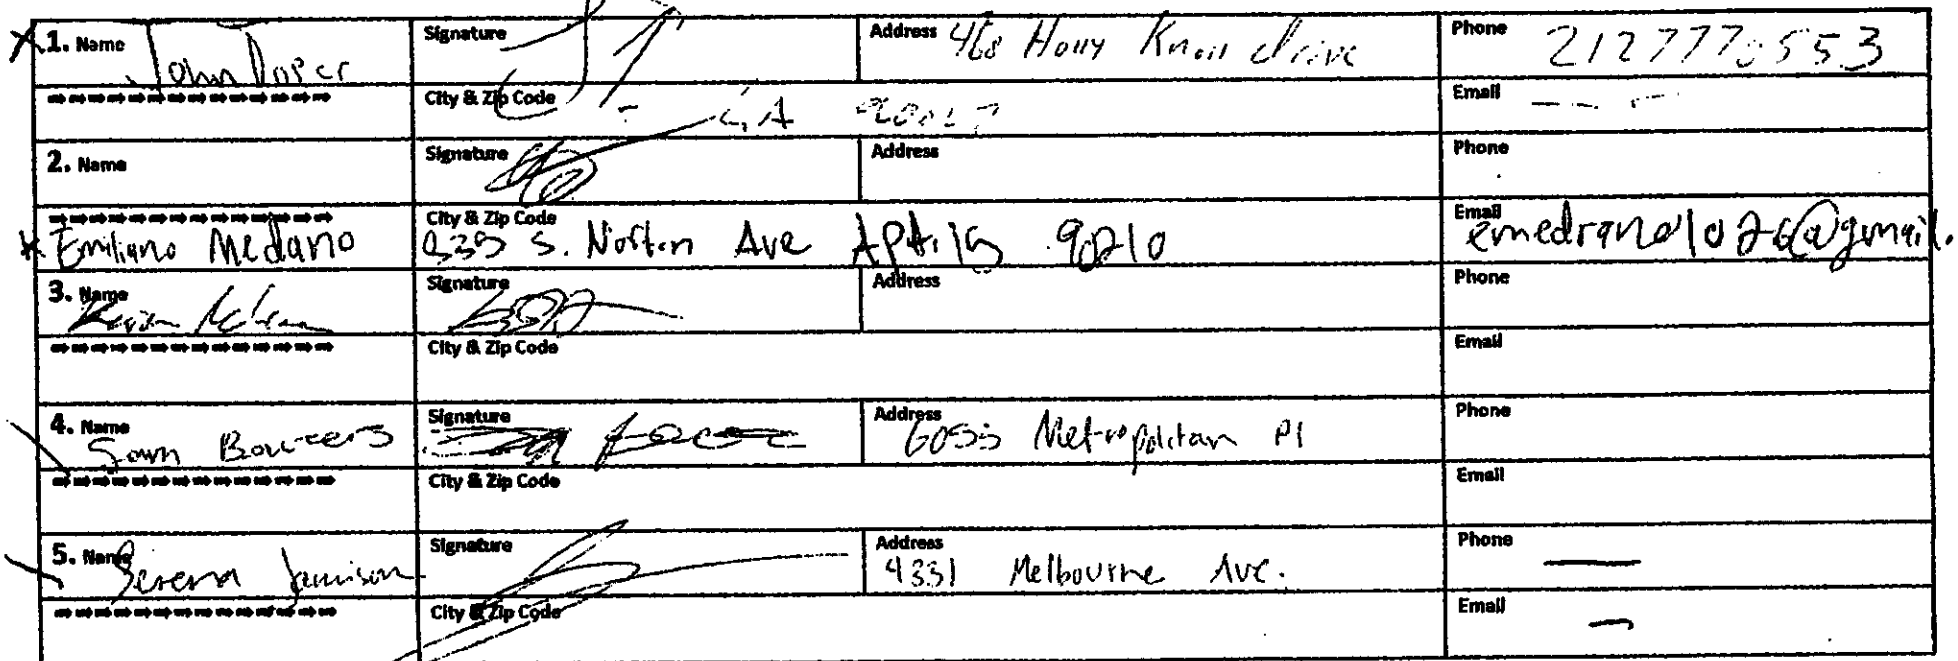 1. Name John Doper Signature Address 468 Holly Knoll drive Phone 2127770553
City & Zip Code LA Email
2. Name Signature Address Phone
Emiliano Medano City & Zip Code S. Norton Ave Apt. 90210 Email emedrano1026@gmail.
3. Name Signature Address Phone
City & Zip Code Email
4. Name Sam Bowers Signature Address 6055 Metropolitan Pl Phone
City & Zip Code Email
5. Name Serena Jamison Signature Address 4331 Melbourne Ave. Phone —
City & Zip Code Email —